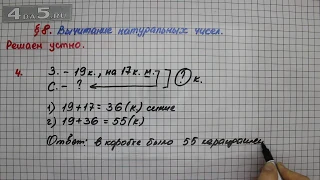 4da5.RU
§8. Вычитание натуральных чисел.
Решаем устно.
4.
З. – 19к., на 17к. м.
? к.
С. – ?
1) 19+17 = 36 (к.) синие
2) 19+36 = 55 (к.)
Ответ: в коробке было 55 карандашей